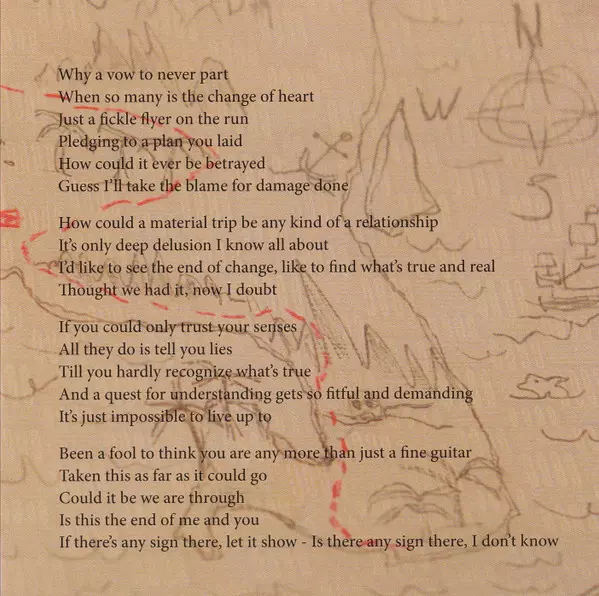 Why a vow to never part
When so many is the change of heart
Just a fickle flyer on the run
Pledging to a plan you laid
How could it ever be betrayed
Guess I'll take the blame for damage done
How could a material trip be any kind of a relationship
It's only deep delusion I know all about
I'd like to see the end of change, like to find what's true and real
Thought we had it, now I doubt
If you could only trust your senses
All they do is tell you lies
Till you hardly recognize what's true
And a quest for understanding gets so fitful and demanding
It's just impossible to live up to
Been a fool to think you are any more than just a fine guitar
Taken this as far as it could go
Could it be we are through
Is this the end of me and you
If there's any sign there, let it show - Is there any sign there, I don't know
N
W
S